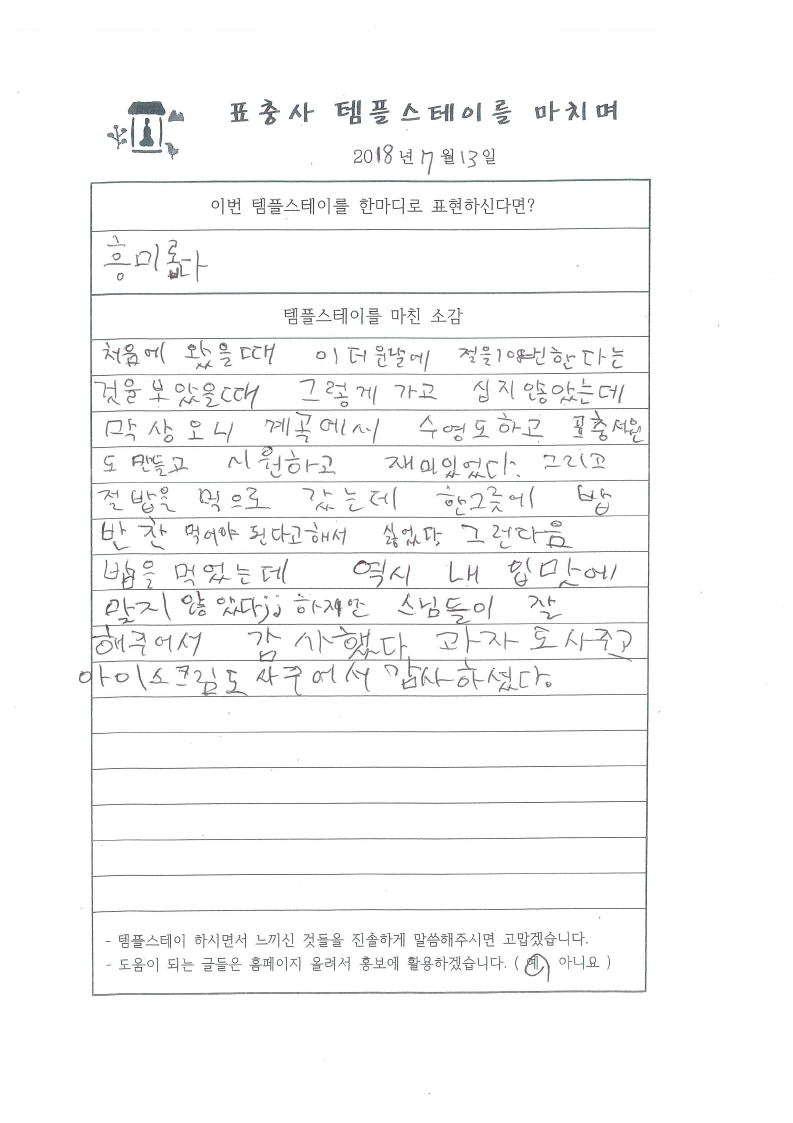 표충사 템플스테이를 마치며
2018년 7월 13일
이번 템플스테이를 한마디로 표현하신다면?
흥미롭다
템플스테이를 마친 소감
처음에 왔을때 이더운날에 절을108번한다는
것을 부았을때 그렇게 가고 십지 않았는데
막상오니 계곡에서 수영도하고 표충서원
도 만들고 시원하고 재미있었다. 그리고
절밥을 먹으로 갔는데 한그릇에 밥
반찬 먹어야 된다고해서 싫었다, 그런다음
밥을 먹었는데 역시 내 입맛에
맞지 않았다;; 하지만 스님들이 잘
해주어서 감사했다. 과자도사주고
아이스크림도 사주어서 감사하셨다.
- 템플스테이 하시면서 느끼신 것들을 진솔하게 말씀해주시면 고맙겠습니다.
- 도움이 되는 글들은 홈페이지 올려서 홍보에 활용하겠습니다. ( 예, 아니요 )